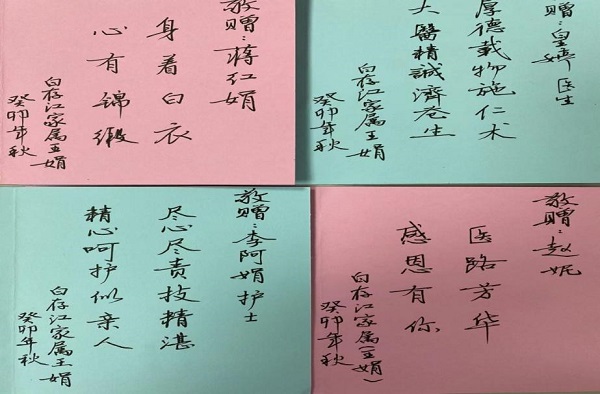 敬赠：蒋红娟
身着白衣
心有锦缎
白存江家属王娟
癸卯年秋
赠：皇婷医生
厚德载物施仁术
大醫精誠濟苍生
白存江家属王娟
癸卯年秋
敬赠：李阿娟护士
尽心尽责技精湛
精心呵护似亲人
白存江家属王娟
癸卯年秋
敬赠：赵妮
医路芳华
感恩有你
白存江家属(王娟)
癸卯年秋